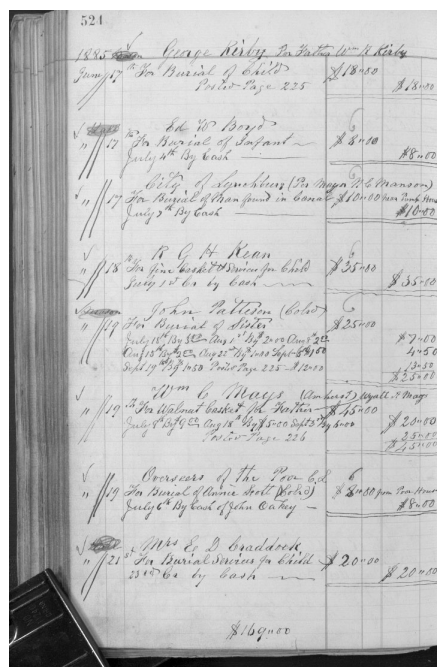 521
1885 George Kirby, Per Father Wm H Kirby
June 17th For Burial of Child $18"00
Posted Page 225 $18"00
Ed W Boyd
" 17th For Burial of Infant $8"00
July 4th By Cash $8"00
City of Lynchburg (Per Mayor N.C. Manson)
" 17 For Burial of Man found in Canal $10"00 from Pump House
July 7th By Cash $10"00
R G H Kean
" 18th For fine Casket & Services for Child $35"00
July 1st Cr by Cash $35"00
John Patteson (Cold)
" 19 For Burial of Sister $25"00
July 18th By Aug 1st By 2"00 Aug 8th $7"00
Aug 15th By Aug 22nd By 1"50 Sept 5th 4"50
Sept 19th By 1"50 Posted Page 225 — $12"00 13"50
$25"00
Wm C Mays (Amherst) Wyatt A Mays
" 19th For Walnut Casket for Father $45"00
July By Aug 18th By $5"00 Sept 3rd By 6"00 $20"00
Posted Page 226 25"00
$45"00
Overseers of the Poor C.L.
" 19 For Burial of Annie Scott (Cold) $8"00 from Poor House
July 6th By Cash of John Oakey $8"00
Mrs E. D Craddock
" 21st For Burial Services for Child $20"00
23rd Cr by Cash $20"00
$169"00